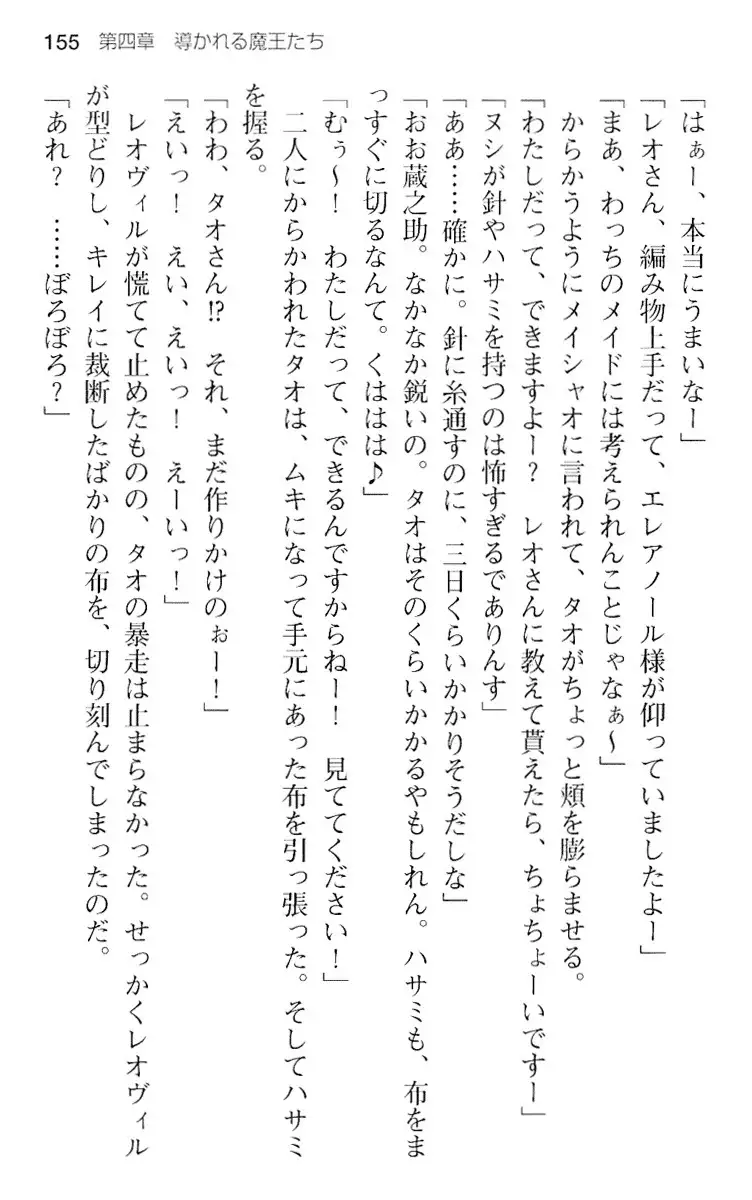 155　第四章　導かれる魔王たち
「はぁー、本当にうまいなー」
「レオさん、編み物上手だって、エレアノール様が仰っていましたよー」
「まあ、わっちのメイドには考えられんことじゃなぁ〜」
　からかうようにメイシャオに言われて、タオがちょっと頬を膨らませる。
「わたしだって、できますよー？　レオさんに教えて貰えたら、ちょちょーいですー」
「ヌシが針やハサミを持つのは怖すぎるでありんす」
「ああ……確かに。針に糸通すのに、三日くらいかかりそうだしな」
「おお蔵之助。なかなか鋭いの。タオはそのくらいかかるやもしれん。ハサミも、布をま
っすぐに切るなんて。くははは♪」
「むぅ〜！　わたしだって、できるんですからねー！　見ててください！」
　二人にからかわれたタオは、ムキになって手元にあった布を引っ張った。そしてハサミ
を握る。
「わわ、タオさん!?　それ、まだ作りかけのぉー！」
「えいっ！　えい、えいっ！　えーいっ！」
　レオヴィルが慌てて止めたものの、タオの暴走は止まらなかった。せっかくレオヴィル
が型どりし、キレイに裁断したばかりの布を、切り刻んでしまったのだ。
「あれ？　……ぼろぼろ？」